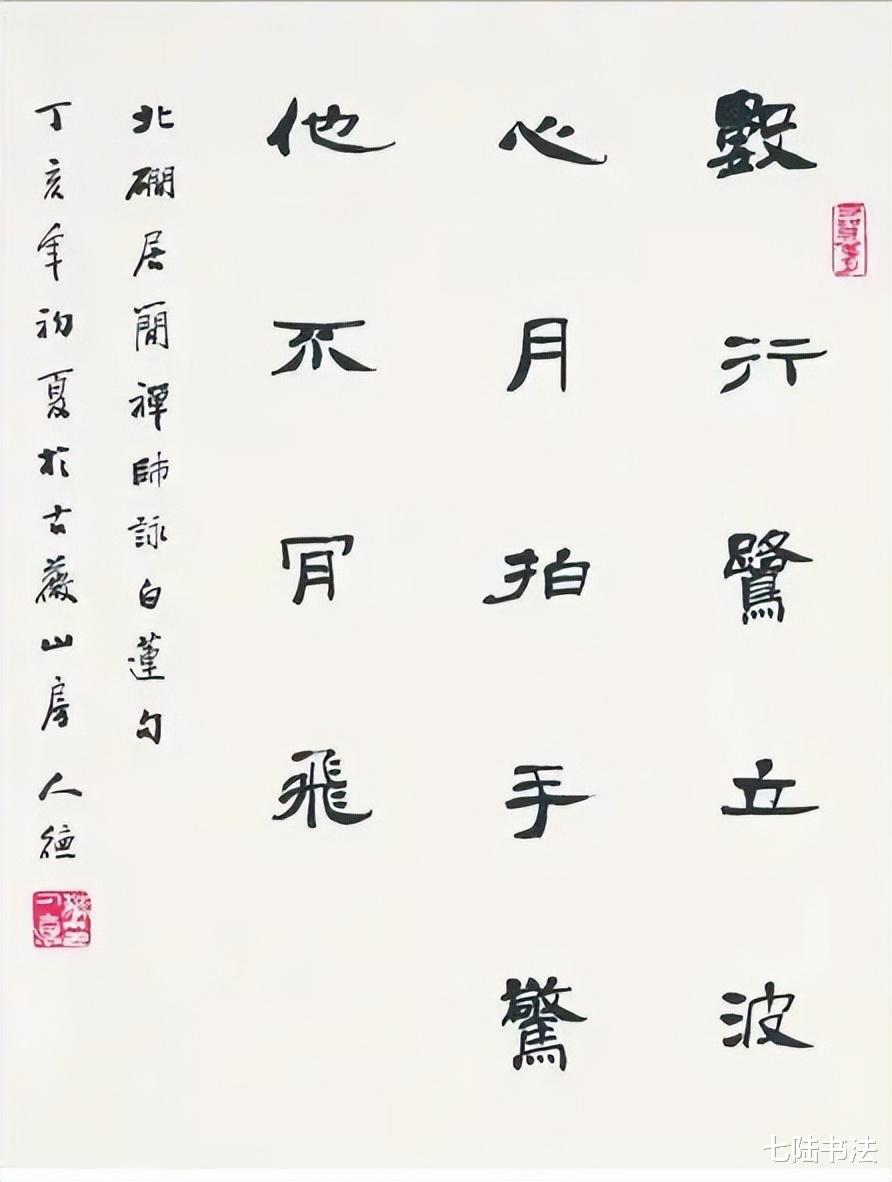 數行鷺立波
心月拍手驚
他不肎飛
北磵居簡禪師詠白蓮句
丁亥年初夏於古薇山房人德
七陆书法